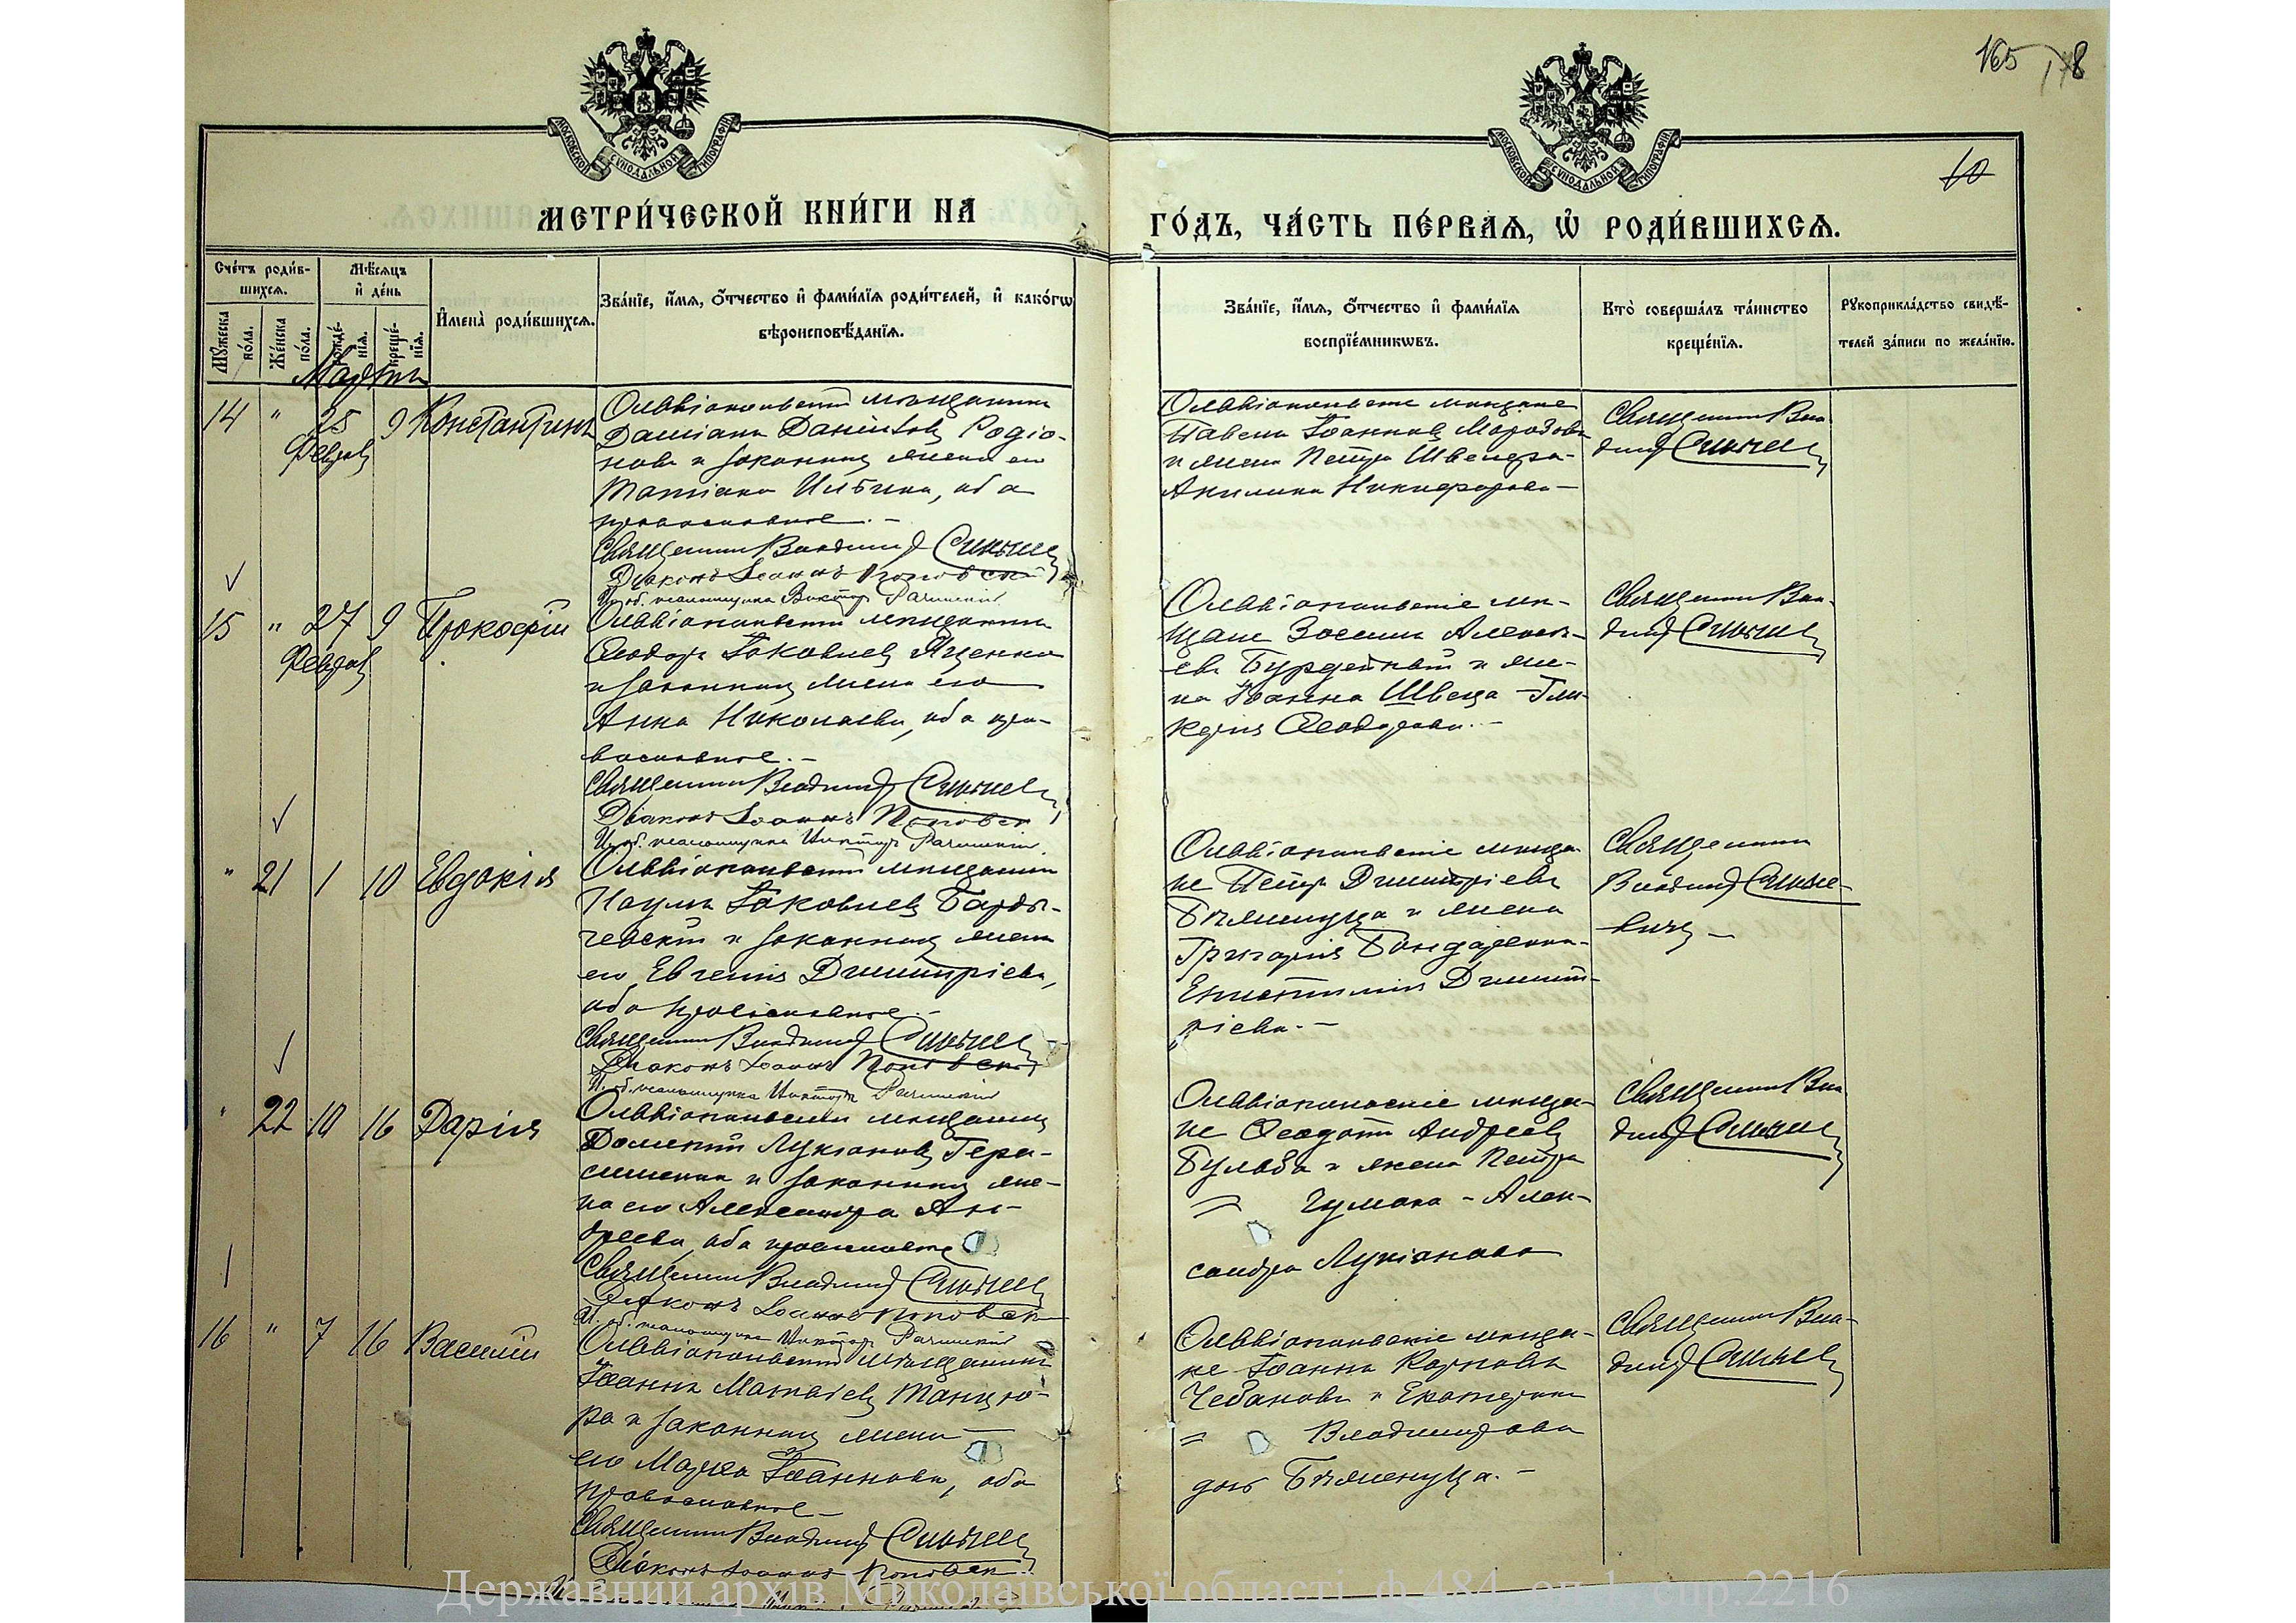 165 178
10
МОСКОВСКОЙ СУНОДАЛЬНОЙ ТИПОГРАФІИ
МОСКОВСКОЙ СУНОДАЛЬНОЙ ТИПОГРАФІИ
МЕТРИ́ЧЕСКОЙ КНИ́ГИ НА
ГО́ДЪ, ЧА́СТЬ ПЕ́РВАѦ, Ѡ҆ РОДИ́ВШИХСѦ.
Сче́тъ роди́в-
шихсѧ.
Мѣ́сѧцъ
и҆ де́нь
Мꙋ́жеска по́ла.
Же́нска по́ла.
рожде́-
нїѧ.
креще́-
нїѧ.
И҆мена̀ роди́вшихсѧ.
Зва́нїе, и҆́мѧ, ѻ҆́тчество и҆ фами́лїѧ роди́телей, и҆ како́гѡ
вѣроисповѣ́данїѧ.
Зва́нїе, и҆́мѧ, ѻ҆́тчество и҆ фами́лїѧ
воспрїе́мникѡвъ.
Кто̀ соверша́лъ та́инство
креще́нїѧ.
Рꙋкоприкла́дство свидѣ́-
телей за́писи по жела́нїю.
Мартъ
14 " 25 9 Константинъ
Феврал
Ольвіопольскій мѣщанинъ
Даміанъ Даніиловъ Родіо-
новъ и законная жена его
Татіана Ильина, оба
православные.-
Священникъ Владимір
Діаконъ Іоаннъ Поповскій
И. об. псаломщика Виктор
Ольвіопольские мещане
Павелъ Іоанновъ Морозовъ
и жена Петра Швеца-
Акилина Никифорова-
Священник Вла-
димір
15 " 27 9 Прокофій
Феврал
Ольвіопольскій мѣщанинъ
Ѳеодоръ Іаковлевъ Яценко
и законная жена его
Анна Николаева, оба пра-
вославные.-
Священник Владимір
Діаконъ Іоаннъ Поповск
И. об. псаломщика Виктор
Ольвіопольскіе мѣ-
щане Зосима Алексѣ-
евъ Бурдейный и же-
на Іоанна Швеца -Гли-
керія Ѳеодорова.-
Священник Вла-
димір
" 21 1 10 Евдокія
Ольвіопольскій мѣщанинъ
Наумъ Іаковлевъ Барды-
чевскій и законная жена
его Евгенія Димитріева,
оба православные.-
Священник Владимір
Діаконъ Іоаннъ Поповскій
И. об. псаломщика Виктор
Ольвіопольскіе мѣща-
не Петръ Димитріевъ
Бѣлменуца и жена
Григорія Бондаренка-
Епистимія Димит-
ріева.-
Священник
Владимір
" 22 10 16 Дарія
Ольвіопольскій мѣщанинъ
Дометій Лукіановъ Гера-
сименко и законная же-
на его Александра Ан-
дреева, оба православные
Священник Владимір
Діаконъ Іоаннъ Поповск
И. об. псаломщика Виктор
Ольвіопольскіе мѣща-
не Ѳеодотъ Андреевъ
Бульба и жена Петра
= Чумака - Алек-
сандра Лукіанова
Священник Вла-
димір
16 " 7 16 Василій
Ольвіопольскій мѣщанинъ
Іоаннъ Матвіевъ Танцю-
ра и законная жена
его Марѳа Іоаннова, оба
православные-
Священник Владимір
Діаконъ Іоаннъ Поповск
Ольвіопольскіе мѣща-
не Іоаннъ Карповъ
Чебановъ и Екатерина
= Владимирова
дочь Бѣлменуца.-
Священник Вла-
димір
Державний архів Миколаївської області, ф.484, оп.1, спр.2216